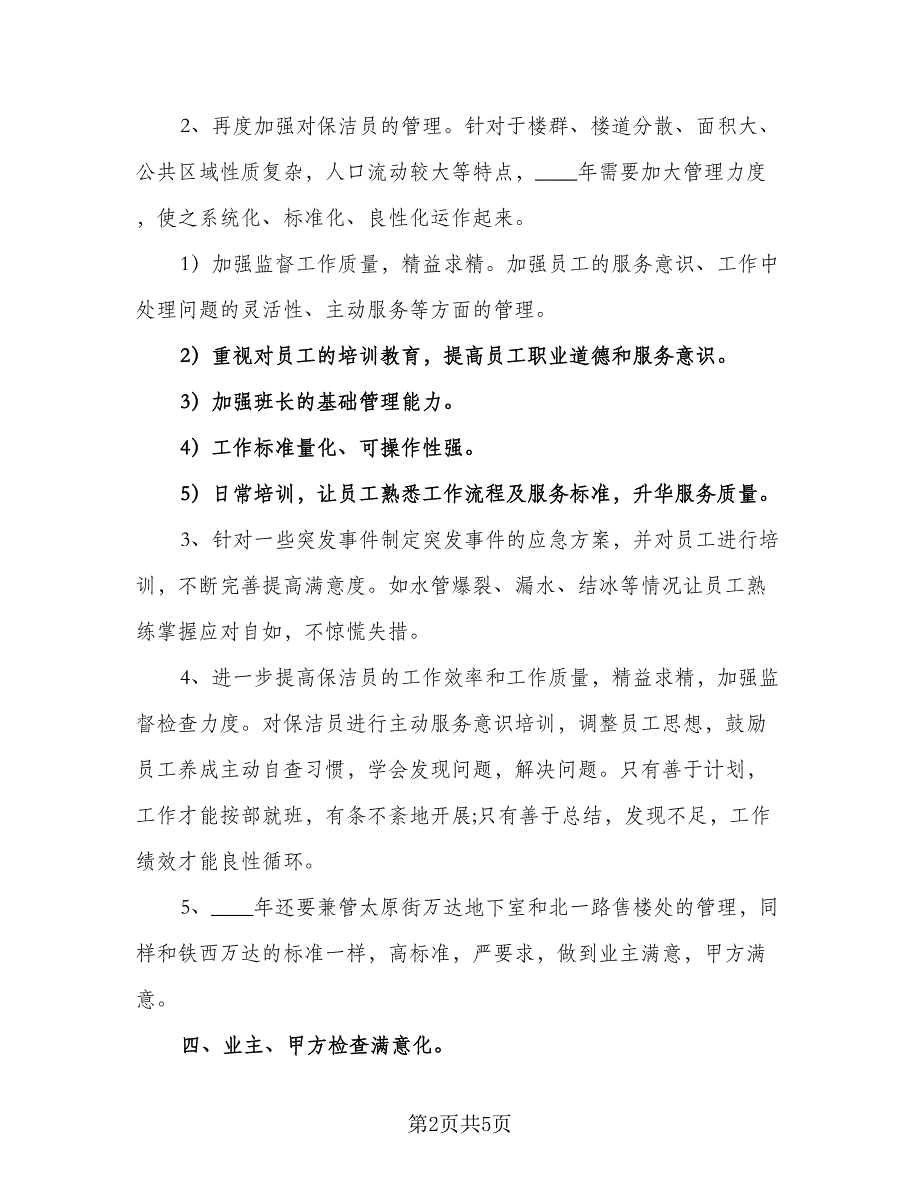 2、再度加强对保洁员的管理。针对于楼群、楼道分散、面积大、
公共区域性质复杂，人口流动较大等特点，____年需要加大管理力度
，使之系统化、标准化、良性化运作起来。
1）加强监督工作质量，精益求精。加强员工的服务意识、工作中
处理问题的灵活性、主动服务等方面的管理。
2）重视对员工的培训教育，提高员工职业道德和服务意识。
3）加强班长的基础管理能力。
4）工作标准量化、可操作性强。
5）日常培训，让员工熟悉工作流程及服务标准，升华服务质量。
3、针对一些突发事件制定突发事件的应急方案，并对员工进行培
训，不断完善提高满意度。如水管爆裂、漏水、结冰等情况让员工熟
练掌握应对自如，不惊慌失措。
4、进一步提高保洁员的工作效率和工作质量，精益求精，加强监
督检查力度。对保洁员进行主动服务意识培训，调整员工思想，鼓励
员工养成主动自查习惯，学会发现问题，解决问题。只有善于计划，
工作才能按部就班，有条不紊地开展;只有善于总结，发现不足，工作
绩效才能良性循环。
5、____年还要兼管太原街万达地下室和北一路售楼处的管理，同
样和铁西万达的标准一样，高标准，严要求，做到业主满意，甲方满
意。
四、业主、甲方检查满意化。
第2页共5页